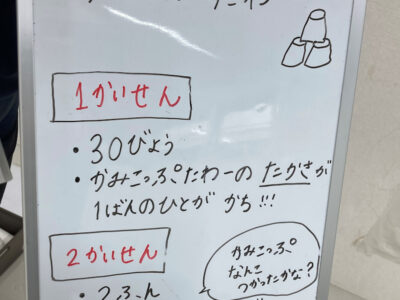 1かいせん
・30びょう
・かみこっぷたわーの たかさが
1ばんのひとが かち!!!
2かいせん
・2ふん
かみこっぷ
なんこ
つかったかな?